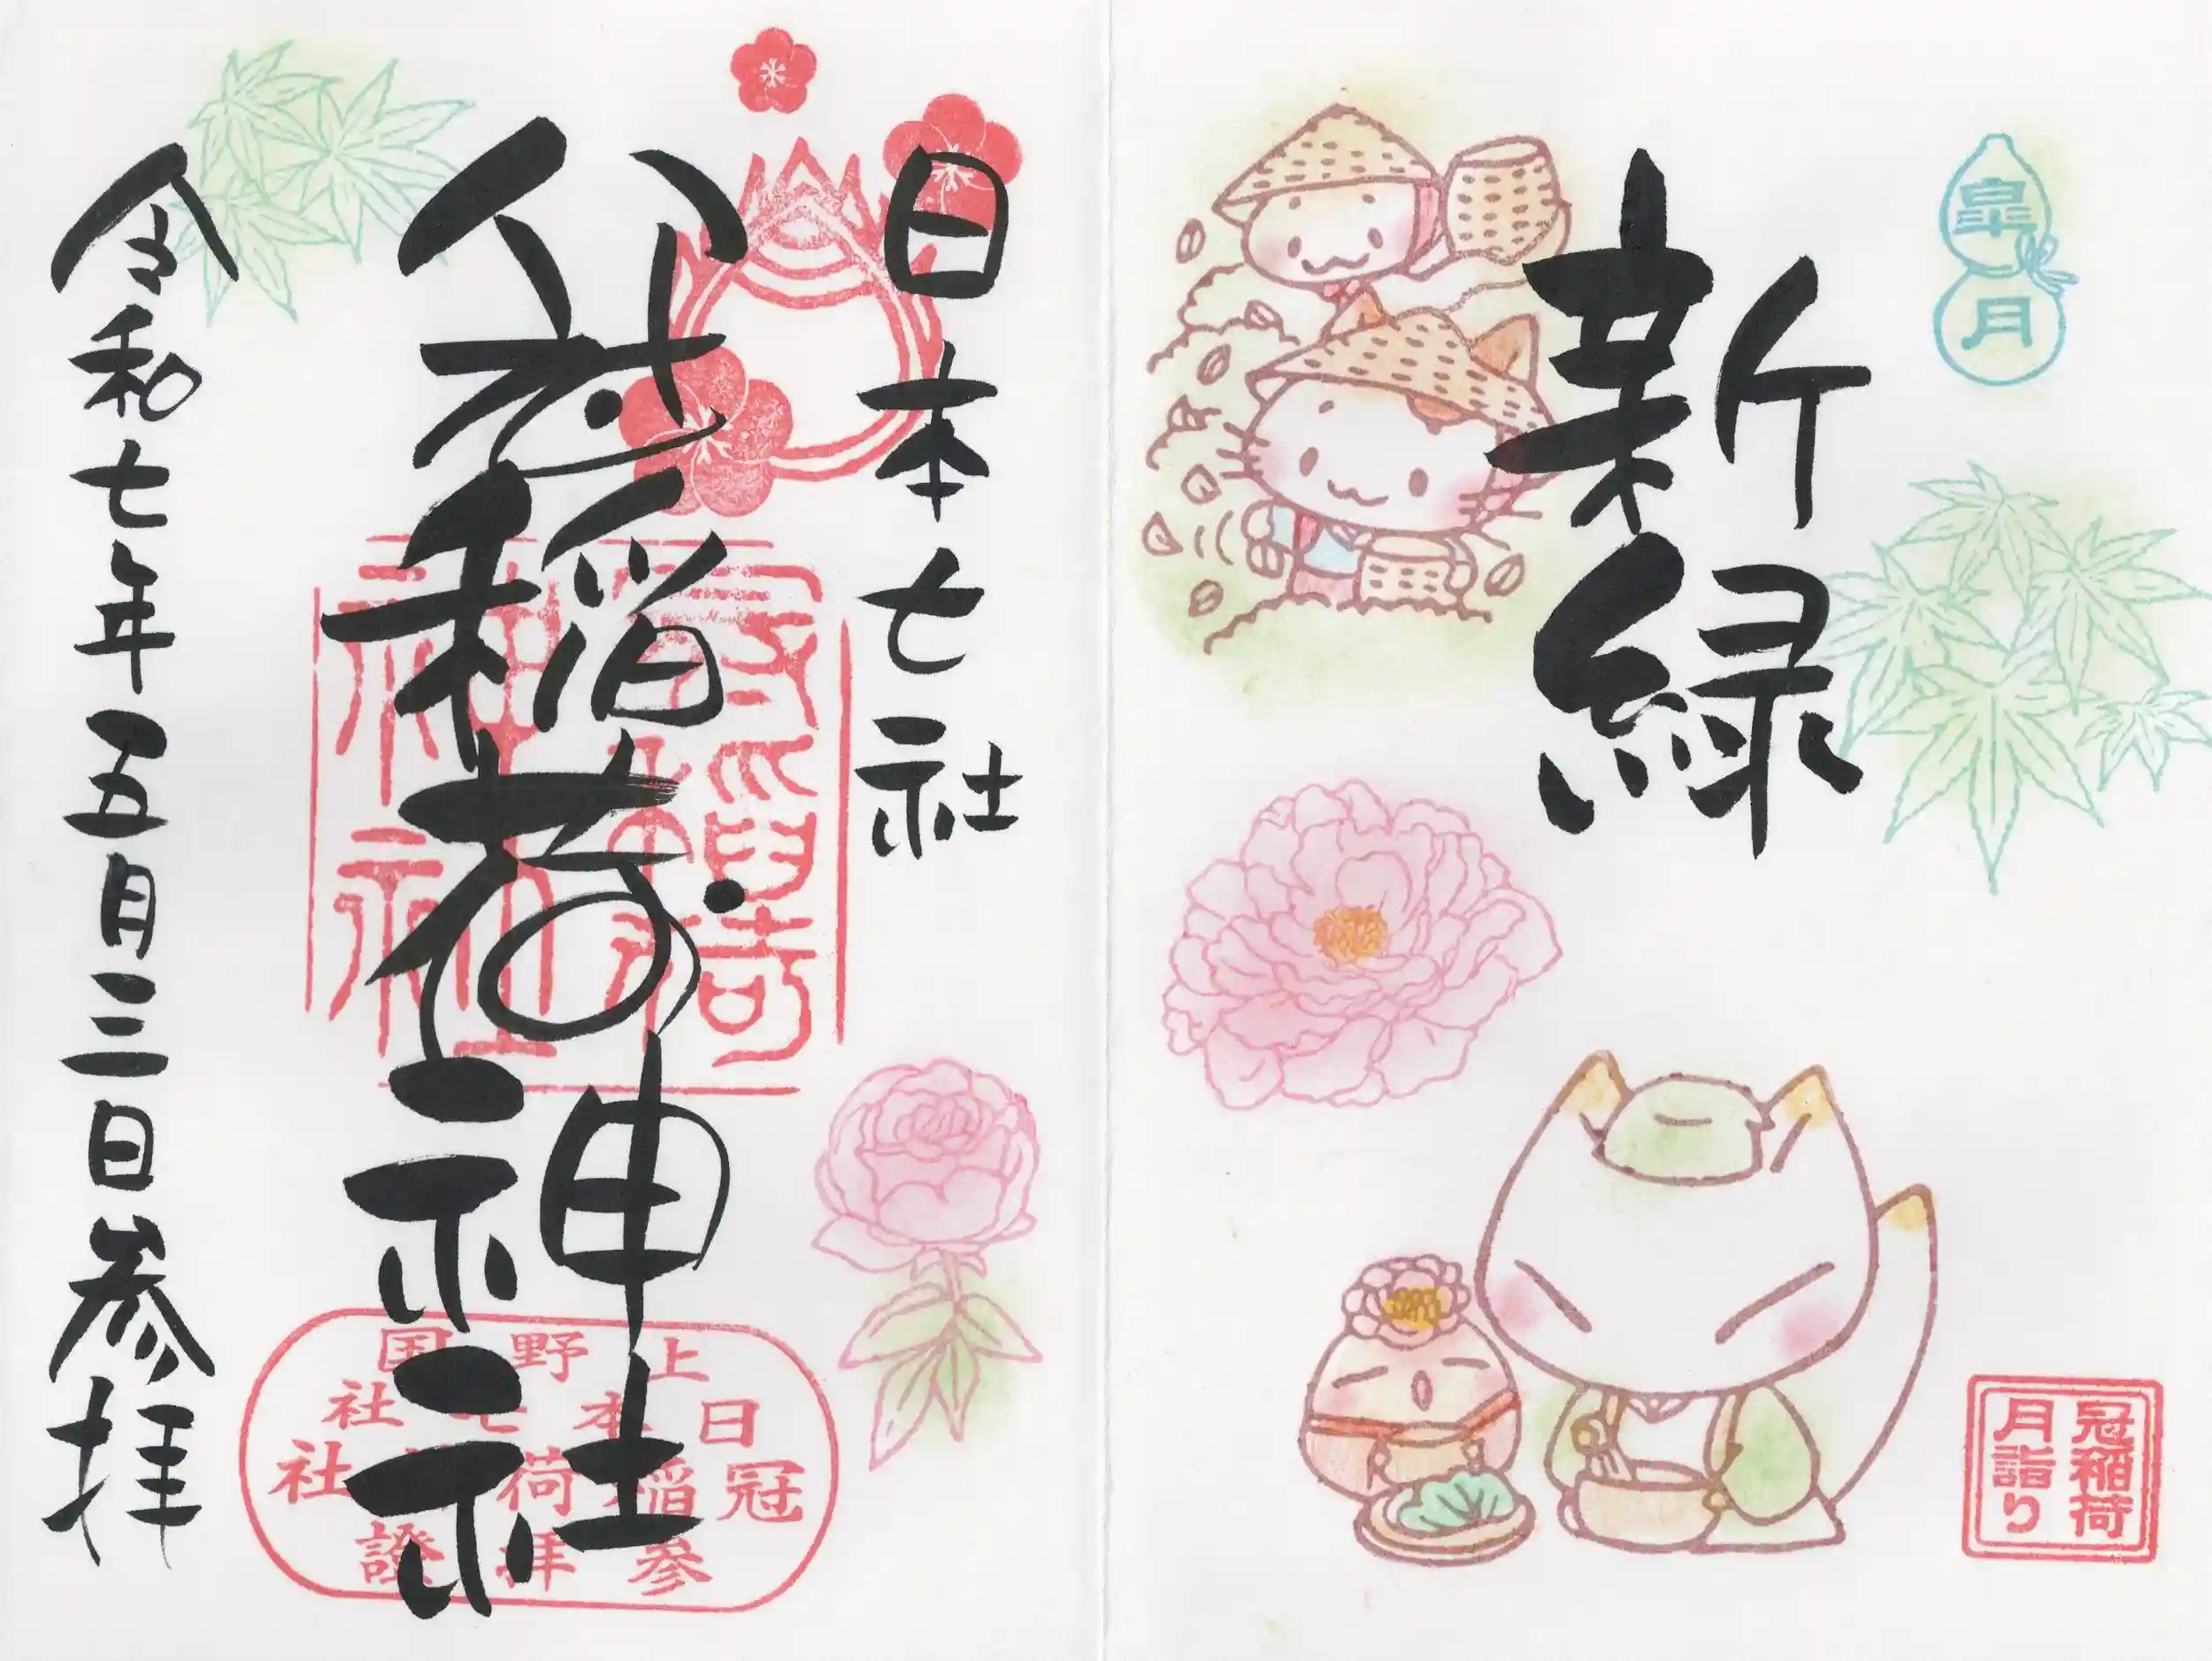 皐月
新緑
冠稲荷
月詣り
日本七社
稲荷神社
上野国
日本七社
冠稲荷神社
参拝證
令和七年五月三日参拝